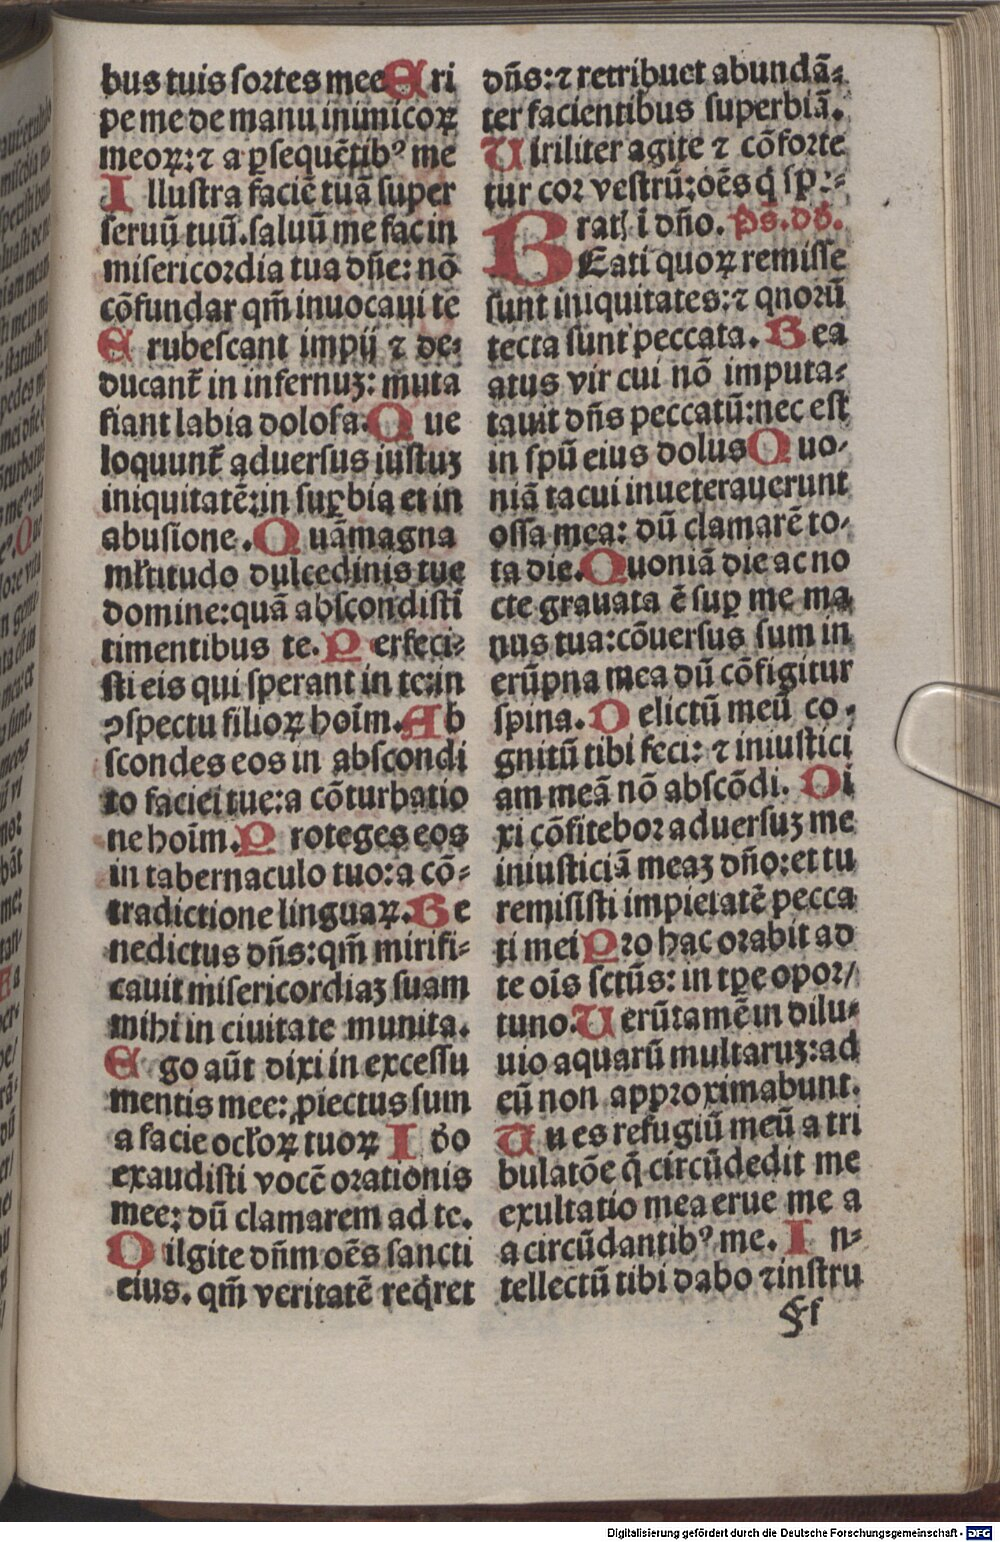 bus tuis sortes mee Eri
pe me de manu inimicoꝝ
meoꝝ: ⁊ a ꝑsequẽtibꝰ me
Illustra faciẽ tuã super
seruũ tuũ. saluũ me fac in
misericordia tua dñe: nõ
cõfundar qm̃ inuocaui te
Erubescant impij ⁊ de-
ducant᷑ in infernuʒ: muta
fiant labia dolosa. Que
loquunt᷑ aduersus iustuʒ
iniquitatẽ: in suꝑbia et in
abusione. Quãmagna
ml̃titudo dulcedinis tue
domine: quã abscondisti
timentibus te. Perfeci-
sti eis qui sperant in te: in
ꝯspectu filioꝝ hoĩm. Ab
scondes eos in abscondi
to faciei tue: a cõturbatio
ne hoĩm. Proteges eos
in tabernaculo tuo: a cõ-
tradictione linguaꝝ. Be
nedictus dñs: qm̃ mirifi-
cauit misericordiaʒ suam
mihi in ciuitate munita.
Ego aũt dixi in excessu
mentis mee: ꝓiectus sum
a facie ocl̃oꝝ tuoꝝ Ido
exaudisti vocẽ orationis
mee: dũ clamarem ad te.
Diligite dñm oẽs sancti
eius. qm̃ veritatẽ req̃ret
dñs: ⁊ retribuet abundã-
ter facientibus superbiã.
Uiriliter agite ⁊ cõforte
tur cor vestrũ: oẽs q̃ sp̃:-
ratꝭ ĩ dño. Ps. dd.
BEati quoꝝ remisse
sunt iniquitates: ⁊ qnorũ
tecta sunt peccata. Bea
atus vir cui nõ imputa-
tauit dñs peccatũ: nec est
in spũ eius dolus Quo-
niã tacui inueterauerunt
ossa mea: dũ clamarẽ to-
ta die. Quoniã die ac no
cte grauata ẽ suꝑ me ma
nus tua: cõuersus sum in
erũpna mea dũ cõfigitur
spina. Delictũ meũ co-
gnitũ tibi feci: ⁊ iniustici
am meã nõ abscõdi. Di
xi cõfitebor aduersuʒ me
iniusticiã meaʒ dño: et tu
remisisti impietatẽ pecca
ti mei Pro hac orabit ad
te oĩs sctũs: in tꝑe opor/
tuno. Uerũtamẽ in dilu-
uio aquarũ multaruʒ: ad
eũ non approximabunt.
Tu es refugiũ meũ a tri
bulatõe q̃ circũdedit me
exultatio mea erue me a
a circũdantibꝰ me. In-
tellectũ tibi dabo ⁊ instru
Ff
Digitalisierung gefördert durch die Deutsche Forschungsgemeinschaft - DFG